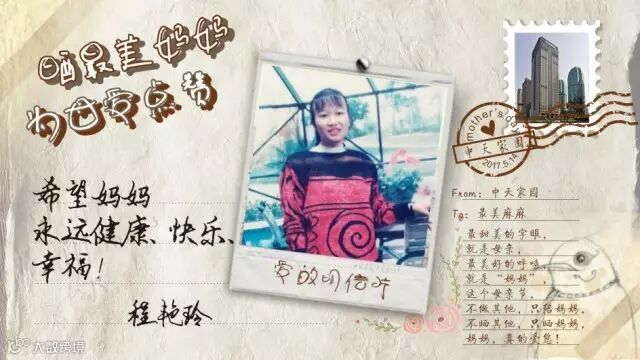 晒最美妈妈
为母爱点赞
希望妈妈
永远健康、快乐、
幸福！
程艳玲
爱的明信片
mother's day
中天家园
2017.5.14
From: 中天家园
To: 最美麻麻
最甜美的字眼，
就是母亲，
最美好的呼唤
就是“妈妈”，
这个母亲节，
不做其他，只陪妈妈，
不晒其他，只晒妈妈，
妈妈，真的爱您！
大数跨境